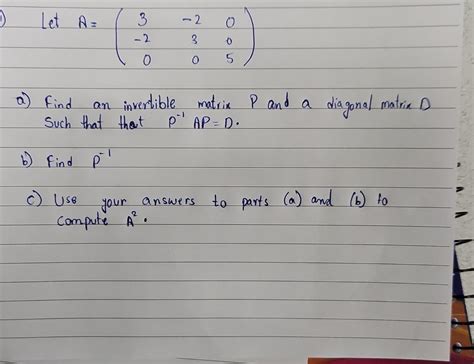 Let A = ( 3 -2 0
-2 3 0
0 0 5 )
a) Find an invertible matrix P and a diagonal matrix D
Such that that P⁻¹ AP = D.
b) Find P⁻¹
c) Use your answers to parts (a) and (b) to
compute A².